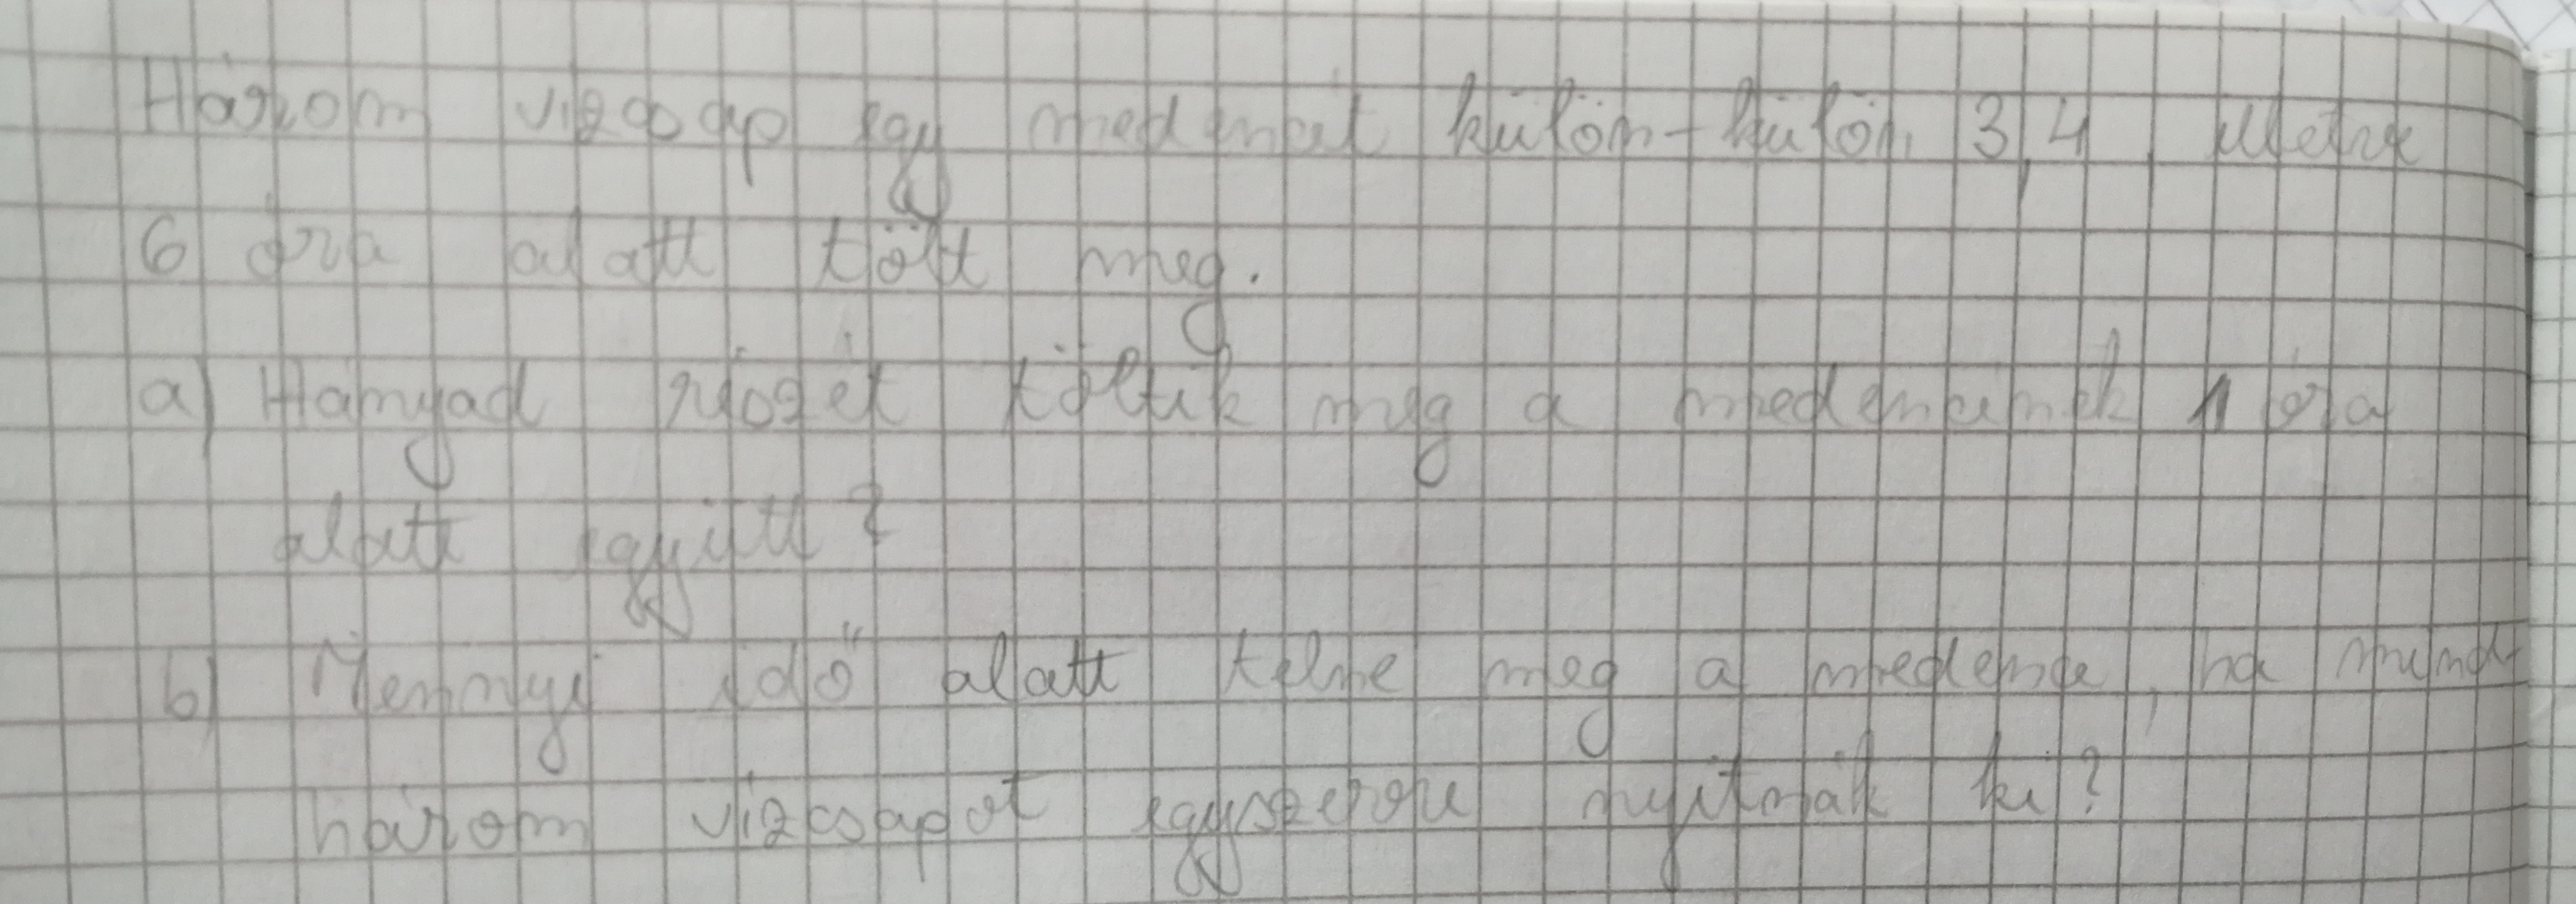 Három vízcsap egy medencét külön-külön 3,4, illetve
6 óra alatt tölt meg.
a) Hányad részét töltik meg a medencének 1 óra
alatt együtt?
b) Mennyi idő alatt telne meg a medence, ha mind-
három vízcsapot egyszerre nyitnák ki?